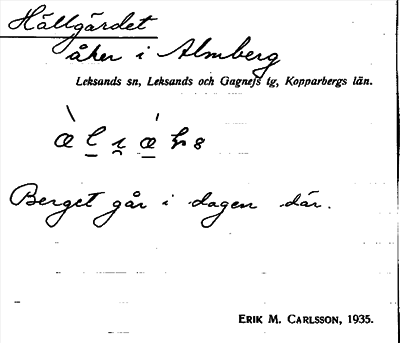 Hällgärdet
åker i Almberg
Leksands sn, Leksands och Gagnefs tg, Kopparbergs län.
Berget går i dagen där.
ERIK M. CARLSSON, 1935.